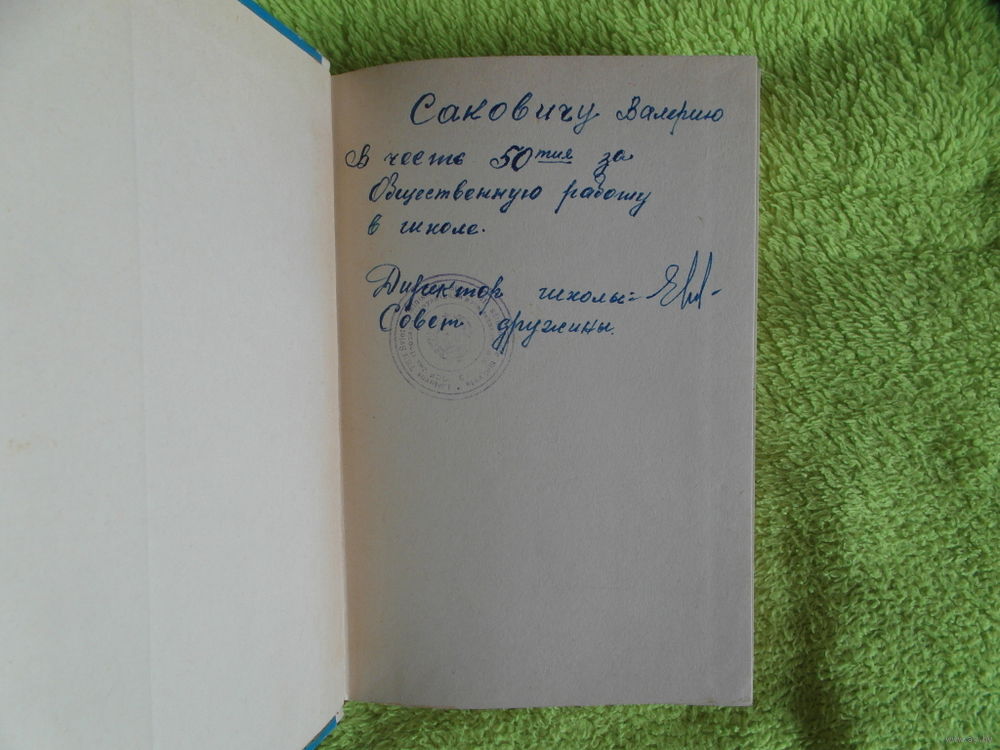 Саковичу Валерию
В честь 50тия за
Общественную работу
в школе.
Директор школы:
Совет дружины.